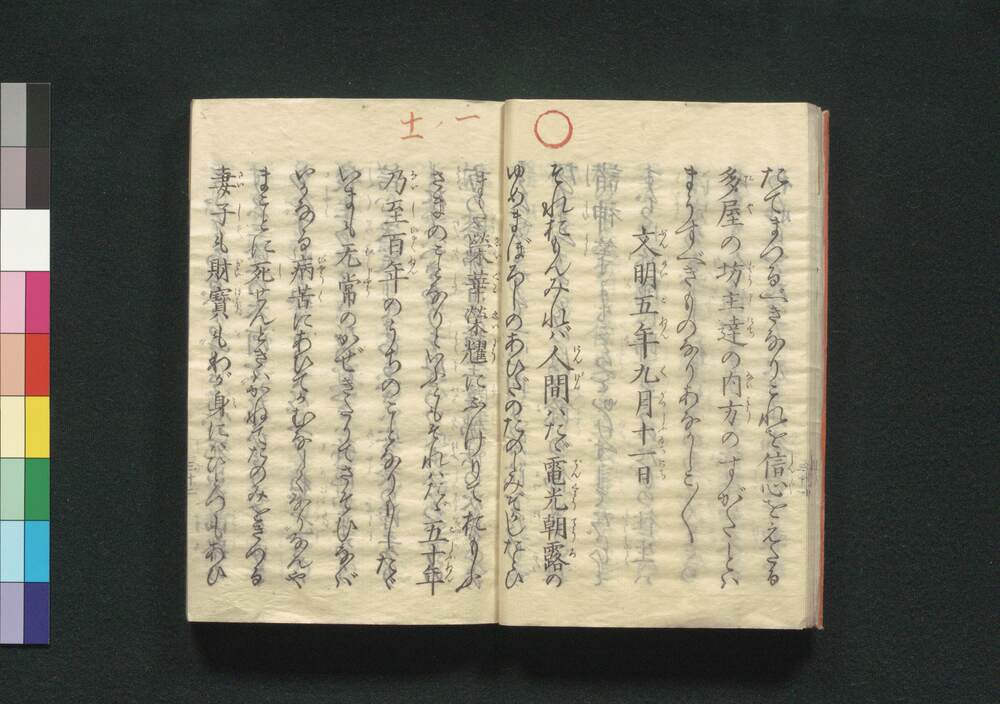 たてまつるべきなりこれを信心をえたる
多屋の坊主達の内方のすがたとは
まうすべきものなりあなかしこ〱
文明五年九月十一日
一ノ十一
それおもんみれば人間はたゞ電光朝露の
ゆめまぼろしのあひだのたのしみぞかしたとひ
また榮華榮耀にふけりておもふ
さまのことなりといふともそれはたゞ五十年
乃至百年のうちのことなりもしたゞ
いまも无常のかぜきたりてさそひなば
いかなる病苦にあひてかむなしくなりなんや
まことに死せんときはかねてたのみをきつる
妻子も財寳もわが身にはひとつもあひ